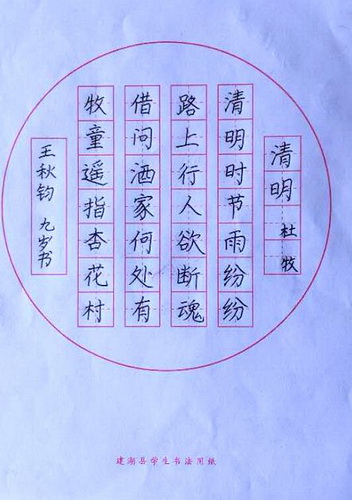 清明
杜牧
清明时节雨纷纷
路上行人欲断魂
借问酒家何处有
牧童遥指杏花村
王秋钧 九岁书
建湖县学生书法用纸